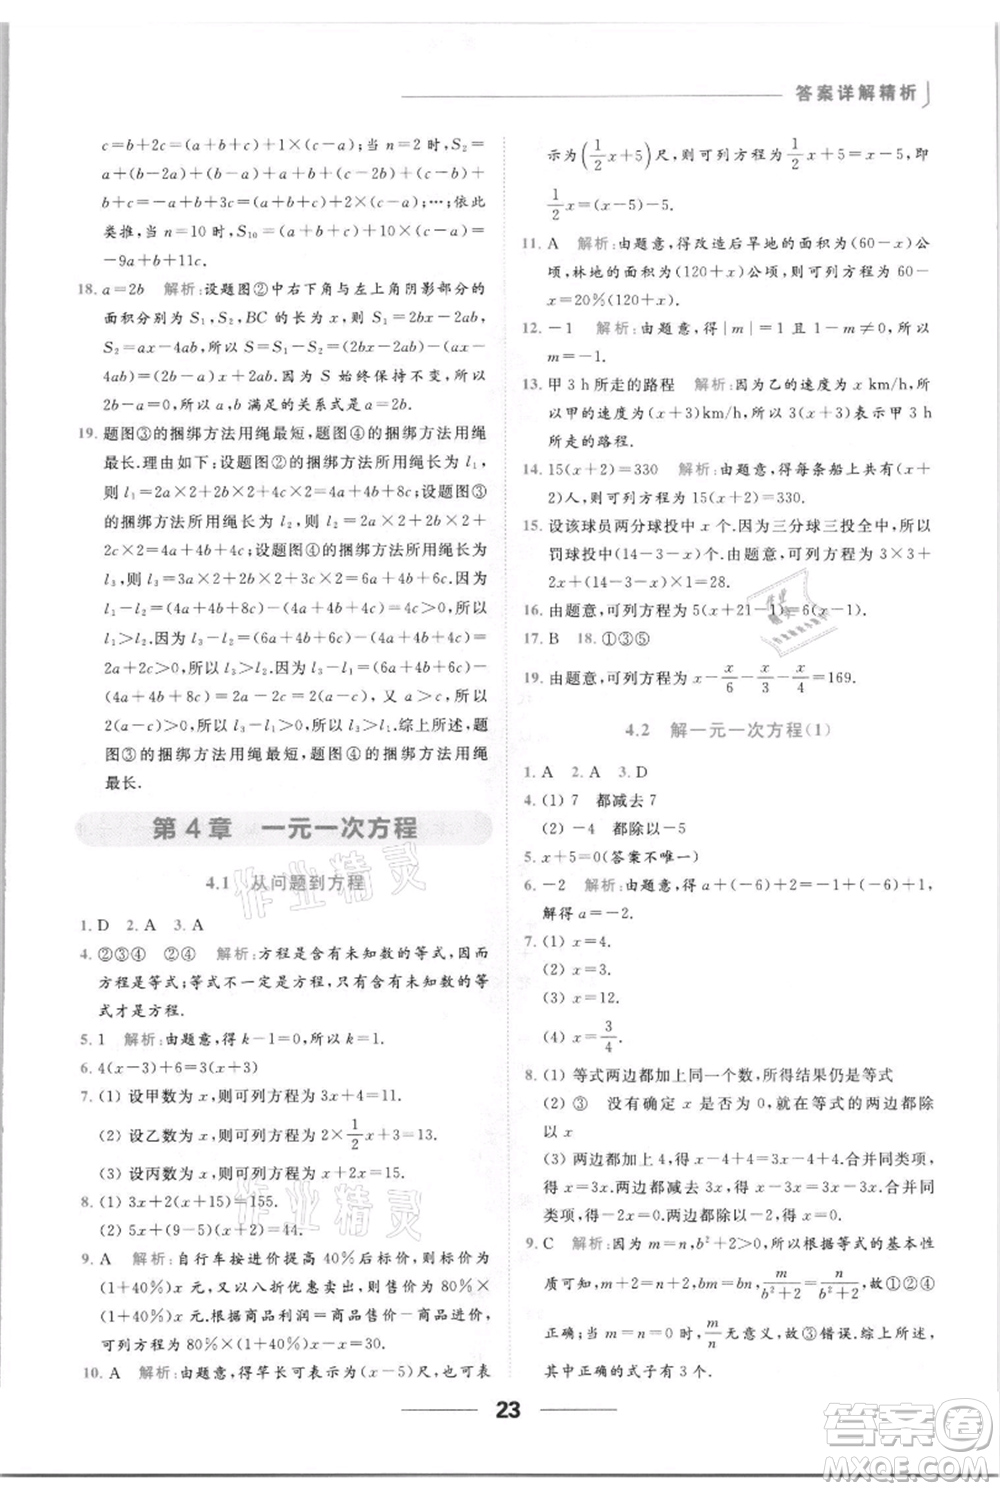 答案详解精析
c=b+2c=(a+b+c)+1×(b+c);当 n=2 时,S₂=
a+(b-2a)+(b+2c)=(a+b+c)+(-2a)+
b+b+c+c=(a+b+c)+2×(-a+b+c);…;依此
类推,当 n=10 时,S₁₀=(a+b+c)+10(-a+b+c)=
-9a+b+11c.
18. a=2b 解析:设题图②中右下角与左上角阴影部分的
19. 题图③的捆绑方法用绳最短,题图④的捆绑方法用绳
最长.理由如下:设题图②的捆绑方法所用绳长为 l₁,
则 l₁=2a×2+2b×2+4c×2=4a+4b+8c;设题图③
的捆绑方法所用绳长为 l₂,则 l₂=2a×2+2b×2+
l₁>l₂.因为 l₃-l₁=(6a+4b+6c)-(4a+4b+8c)=
2(a-c)>0,所以 l₃>l₁.因为 l₃-l₂=(6a+4b+6c)-
(4a+4b+4c)=2a+2c=2(a+c),又 a>c,所以
2(a-c)>0,所以 l₃-l₁>l₃-l₂.综上所述,题
图③的捆绑方法用绳最短,题图④的捆绑方法用绳
最长.
第 4 章 一元一次方程
4.1 从问题到方程
1. D 2. A 3. A
4. ②③④ ②④ 解析:方程是含有未知数的等式,因而
方程是等式;等式不一定是方程,只有含有未知数的等
式才是方程.
5. 1 解析:由题意,得 k-1=0,所以 k=1.
6. 4(x-3)+6=3(x+3)
7. (1) 设甲数为 x,则可列方程为 3x+4=11.
(2) 设乙数为 x,则可列方程为 2×1/2x+3=13.
(3) 设丙数为 x,则可列方程为 4x-1=15.
8. (1) 3x+2(x+15)=155.
(2) 5x+(9-5)(x+2)=243.
9. A 解析:自行车按进价提高 40%后标价,则标价为
(1+40%)x 元,又以八折优惠卖出,则售价为 80%×
(1+40%)x 元.根据商品利润=商品售价-商品进价,
可列方程为 80%×(1+40%)x-x=30.
10. A 解析:由题意,得竿长可表示为(x-5)尺,也可表
示为(1/2x+5)尺,则可列方程为 1/2x+5=x-5,即
1/2x=(x-5)-5.
11. A 解析:由题意,得改造后旱地的面积为(60-x)公
顷,林地的面积为(120+x)公顷,则可列方程为 60-
x=20%(120+x).
12. -1 解析:由题意,得|m|=1 且 1-m≠0,解得
m=-1.
13. 甲 3 h所走的路程 解析:因为乙的速度为 x km/h,
所以甲的速度为(x+3)km/h,所以 3(x+3)表示甲 3 h
所走的路程.
14. 15(x+2)=330 解析:由题意,得每条船上共有(x+
2)人,则可列方程为 15(x+2)=330.
15. 设该球员两分球投中 x 个.因为三分球三投全中,所以
罚球投中(14-3-x)个.由题意,可列方程为 3×3+
2x+(14-3-x)×1=28.
16. 由题意,可列方程为 5(x+21-1)=6(x-1).
17. B 18. ①③⑤
19. 由题意,可列方程为 x-x/6-x/3-x/4=169.
4.2 解一元一次方程(1)
1. A 2. A 3. D
4. (1) 7 都减去 7
(2) -4 都除以-5
5. x+5=0(答案不唯一)
6. -2 解析:由题意,得 a+(-6)-(-6)=-8-(-6),
解得 a=-2.
7. (1) x=4.
(2) x=3.
(3) x=12.
(4) x=3/4.
8. (1) 等式两边都加上同一个数,所得结果仍是等式
(2) ③ 没有确定 x 是否为 0,就在等式的两边都除
以 x
(3) 两边都加上 4,得 x-4+4=3x-4+4.合并同类项,
得 x=3x.两边都减去 3x,得 x-3x=3x-3x.合并同
类项,得-2x=0.两边都除以-2,得 x=0.
9. C 解析:因为 m=n,b²+2>0,所以根据等式的基本性
质可知,m+2=n+2,bm=bn,m/(b²+2)=n/(b²+2),故①②④
正确;当 m=n=0 时,m/n无意义,故③错误.综上所述,
其中正确的式子有 3 个.
23
作业精灵
作业精灵
答案圈
MXQE.COM